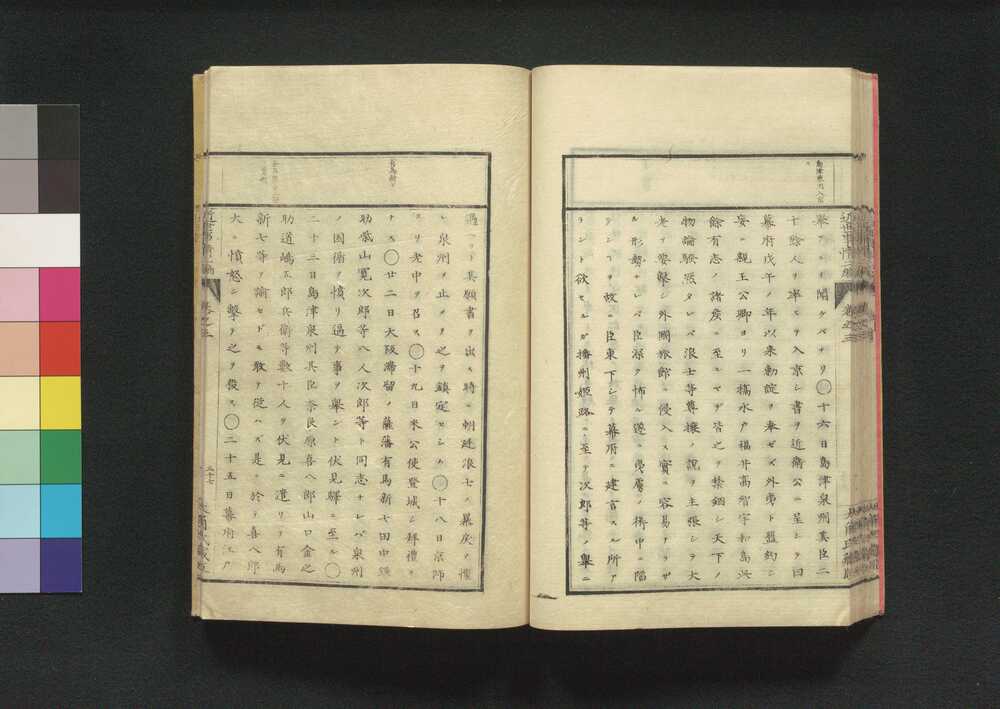 島津泉州入京
擧アルヲ聞ケバナリ〇十六日島津泉州其臣二
十餘人ヲ率ヒテ入京シ書ヲ近衛公ニ呈シテ曰
幕府戊午ノ年以来勅諚ヲ奉ゼズ外夷ト盟約シ
妄ニ親王公卿ヨリ一橋水戸福井高智宇和島其
餘有志ノ諸矦ニ至ルマデ皆之ヲ禁錮シ天下ノ
物論騒然タレバ浪士等尊攘ノ説ヲ主張シテ大
老ヲ要撃シ外國旅館ニ侵入ス實ニ容易ナラザ
ル形勢ナレバ臣深ク怖ル遂ニ夷虜ノ術中ニ陥
ランコヲ故ニ臣東下シテ幕府ニ建言スル所ア
ラント欲セシガ播州姫路ニ至テ次郎等ノ擧ニ
遇ヘリト其願書ヲ出ス時ニ朝廷浪士ノ暴戻ヲ懼
レ泉州ヲ止メテ之ヲ鎮定セシム〇十八日京師
ヨリ老中ヲ召ス〇十九日米公使登城シ拜禮ヲ
ナス〇廿二日大阪滞留ノ薩藩有馬新七田中謙
助柴山寛次郎等八人次郎等ト同志ナレバ泉州
ノ因循ヲ憤リ過テ事ヲ擧ント伏見驛ニ至ル〇
二十三日島津泉州其臣奈良原喜八郎山口金之
助道嶋五郎兵衛等數十人ヲ伏見ニ遣リテ有馬
新七等ヲ諭セドモ敢テ從ハズ是ニ於テ喜八郎
大ニ憤怒シ撃テ之ヲ倭ス〇二十五日幕府江戸
卷之三
三十七